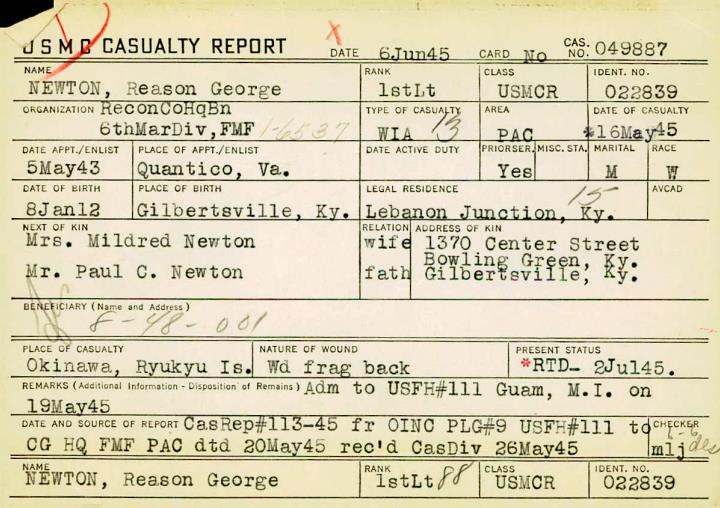 USMC CASUALTY REPORT DATE 6Jun45 CARD No CAS. NO. 049887
NAME RANK CLASS IDENT. NO.
NEWTON, Reason George 1stLt USMCR 022839
ORGANIZATION ReconCoHqBn TYPE OF CASUALTY AREA DATE OF CASUALTY
6thMarDiv,FMF 1-6537 WIA 13 PAC *16May45
DATE APPT./ENLIST PLACE OF APPT./ENLIST DATE ACTIVE DUTY PRIORSER. MISC. STA. MARITAL RACE
5May43 Quantico, Va. Yes M W
DATE OF BIRTH PLACE OF BIRTH LEGAL RESIDENCE AVCAD
8Jan12 Gilbertsville, Ky. Lebanon Junction, Ky. 15
NEXT OF KIN RELATION ADDRESS OF KIN
Mrs. Mildred Newton wife 1370 Center Street
Bowling Green, Ky.
Mr. Paul C. Newton fath Gilbertsville, Ky.
BENEFICIARY (Name and Address)
8-48-001
PLACE OF CASUALTY NATURE OF WOUND PRESENT STATUS
Okinawa, Ryukyu Is. Wd frag back *RTD- 2Jul45.
REMARKS (Additional Information - Disposition of Remains) Adm to USFH#111 Guam, M.I. on
19May45
DATE AND SOURCE OF REPORT CasRep#113-45 fr OINC PLG#9 USFH#111 to CHECKER
CG HQ FMF PAC dtd 20May45 rec'd CasDiv 26May45 mlj
NAME RANK CLASS IDENT. NO.
NEWTON, Reason George 1stLt 88 USMCR 022839